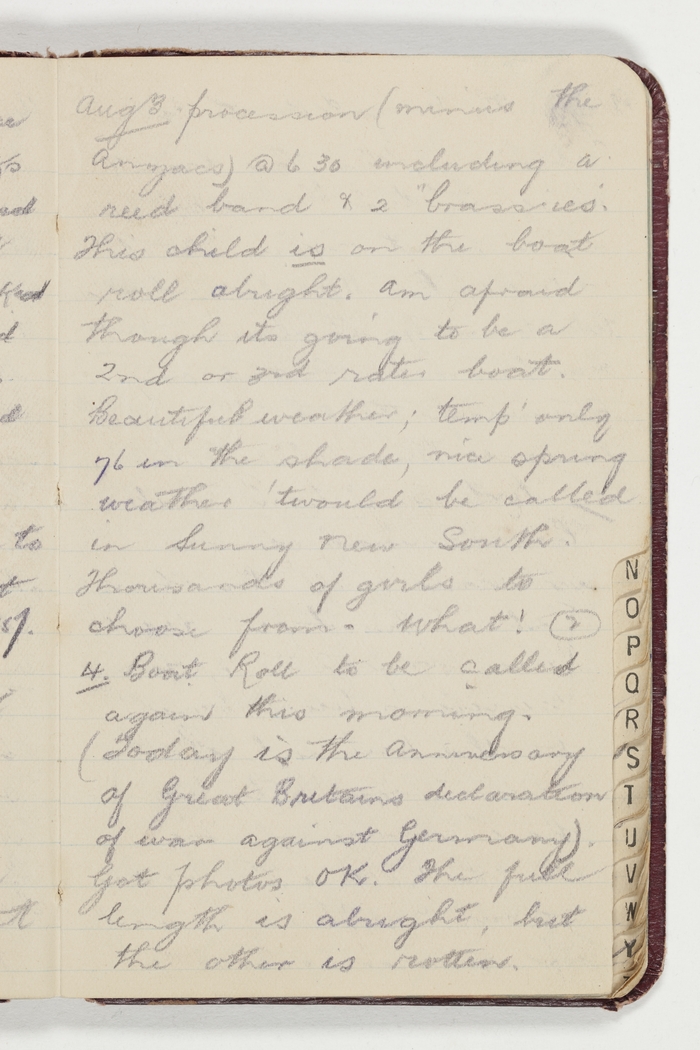 Aug 3 procession (minus the
Anzacs) @ 6 30 including a
reed band & 2 "brass ies'.
This child is on the boat
roll alright. Am afraid
though its going to be a
2nd or 3rd rate boat.
Beautiful weather; temp' only
76 in the shade, nice spring
weather 'twould be called
in Sunny New South.
Thousands of girls to
choose from. What! (?)
4. Boat Roll to be called
again this morning.
(Today is the Anniversary
of Great Britains declaration
of war against Germany).
Got photos OK. The full
length is alright, but
the other is rotten.
to
N
O
P
Q
R
S
T
U
V
W
Y